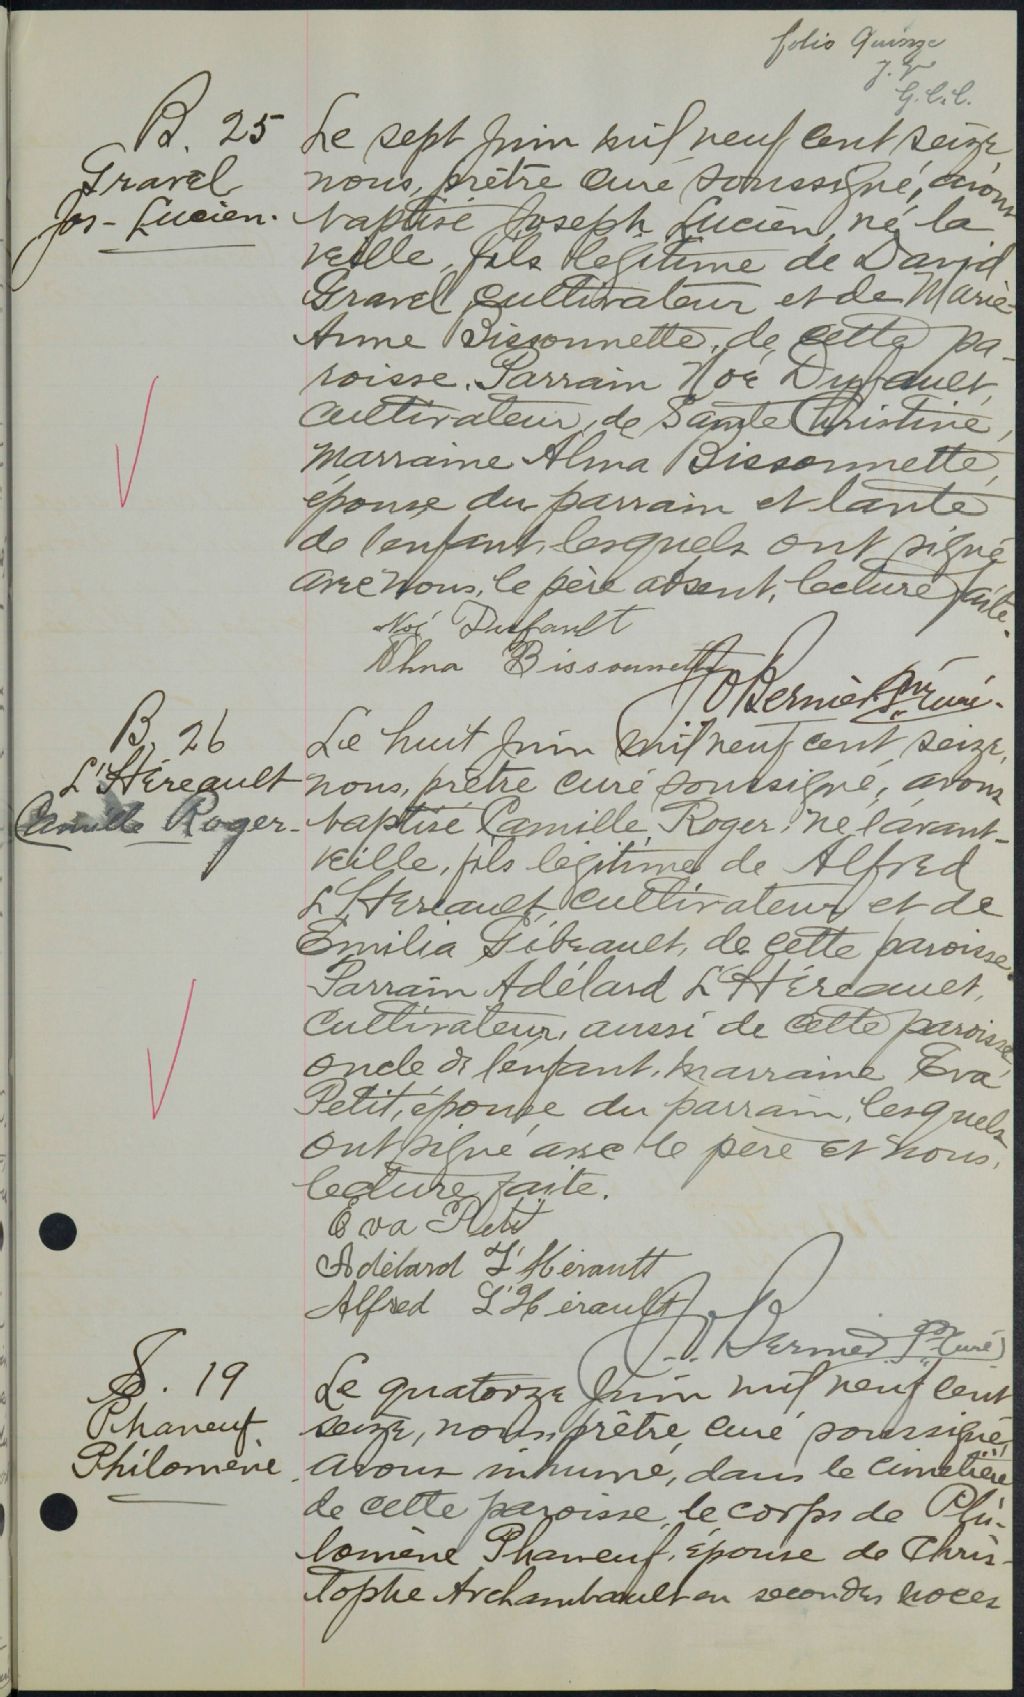 folio Quinze
J. V.
G. C. C.
B. 25
Gravel
Jos-Lucien.
Le sept Juin mil neuf cent seize,
nous, prêtre curé soussigné, avons
baptisé Joseph Lucien, né la
veille, fils légitime de David
Gravel, cultivateur et de Marie-
Anne Bissonnette, de cette pa-
roisse. Parrain Noé Dufault,
cultivateur, de Sainte Christine,
marraine Alma Bissonnette,
épouse du parrain et tante
de l'enfant, lesquels ont signé
avec nous, le père absent, lecture faite.
Noé Dufault
Alma Bissonnette
J O Bernier, Ptre curé.
B. 26
L'Héreault
Camille Roger-
Le huit Juin mil neuf cent seize,
nous, prêtre curé soussigné, avons
baptisé Camille Roger, né l'avant-
veille, fils légitime de Alfred
L'Héreault, cultivateur et de
Emilia Gibeault, de cette paroisse.
Parrain Adélard L'Héreault,
cultivateur, aussi de cette paroisse,
oncle de l'enfant, marraine Eva
Petit, épouse du parrain, lesquels
ont signé avec le père et nous,
lecture faite.
Eva Petit
Adélard L'Hérault
Alfred L'Hérault
J. O. Bernier Ptre curé
S. 19
Phaneuf
Philomène
Le quatorze Juin mil neuf cent
seize, nous, prêtre, curé soussigné,
avons inhumé, dans le cimetière
de cette paroisse, le corps de Phi-
lomène Phaneuf, épouse de Chris-
tophe Archambault en secondes noces